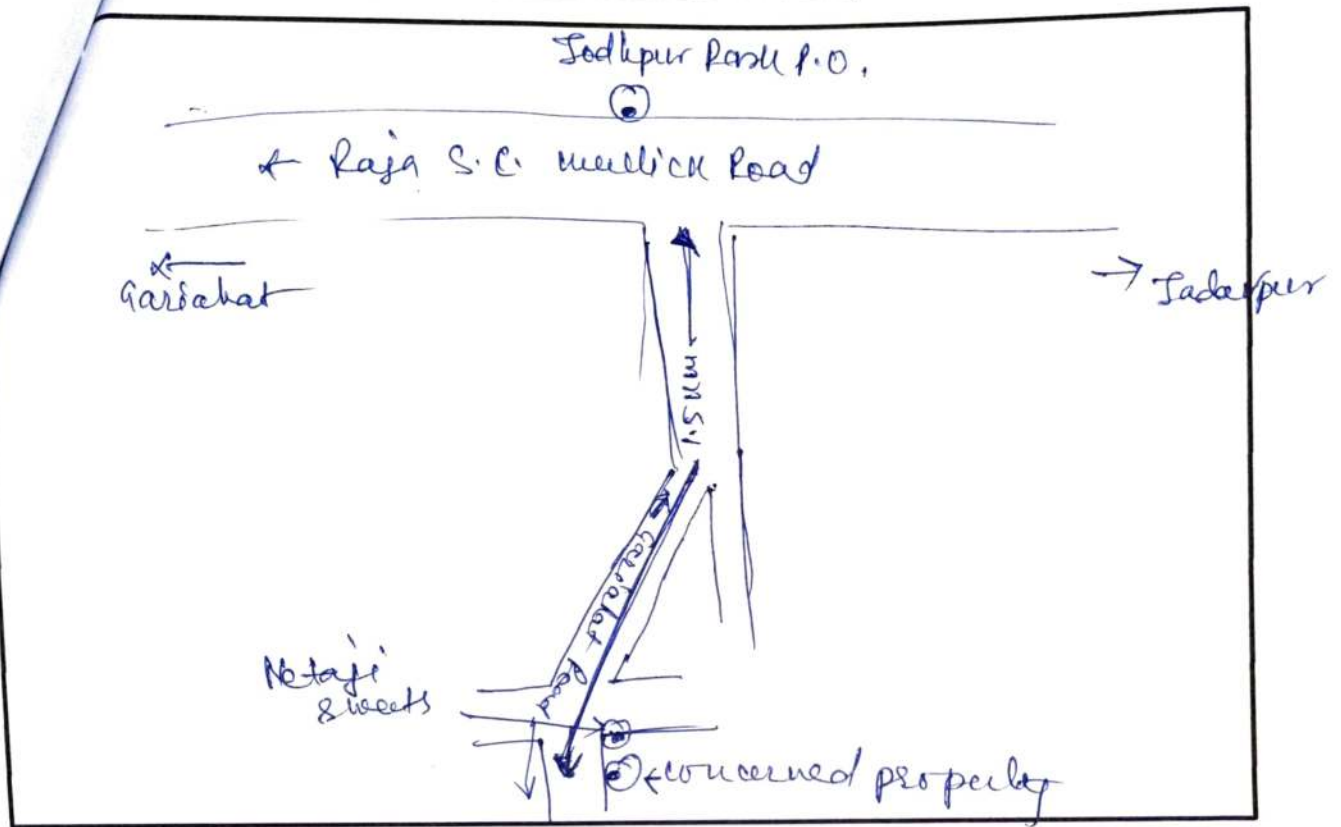 Jodhpur Park P.O.
← Raja S.C. Mullick Road
←
Gariahat
→ Jadavpur
1.5 KM
← Gariahat Road
Netaji
Sweets
← concerned property